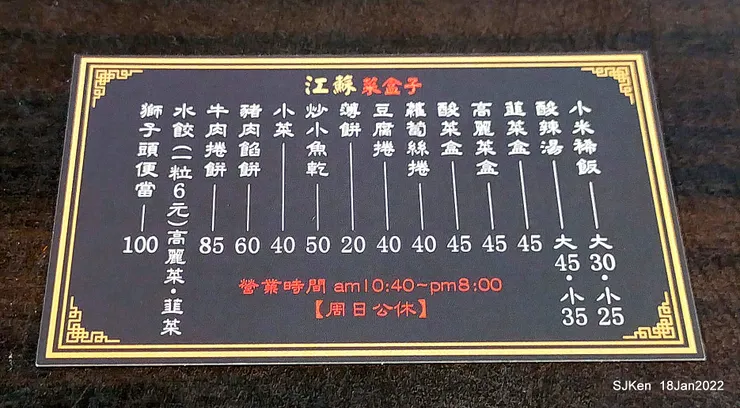 江蘇菜盒子
小米稀飯 大30・小25
酸辣湯 大45・小35
韮菜盒 45
高麗菜盒 45
酸菜盒 45
蘿蔔絲捲 40
豆腐捲 40
薄餅 20
炒小魚乾 50
小菜 40
豬肉餡餅 60
牛肉捲餅 85
水餃(一粒6元)高麗菜・韮菜
獅子頭便當 100
營業時間 am10:40~pm8:00
【周日公休】
SJKen 18Jan2022